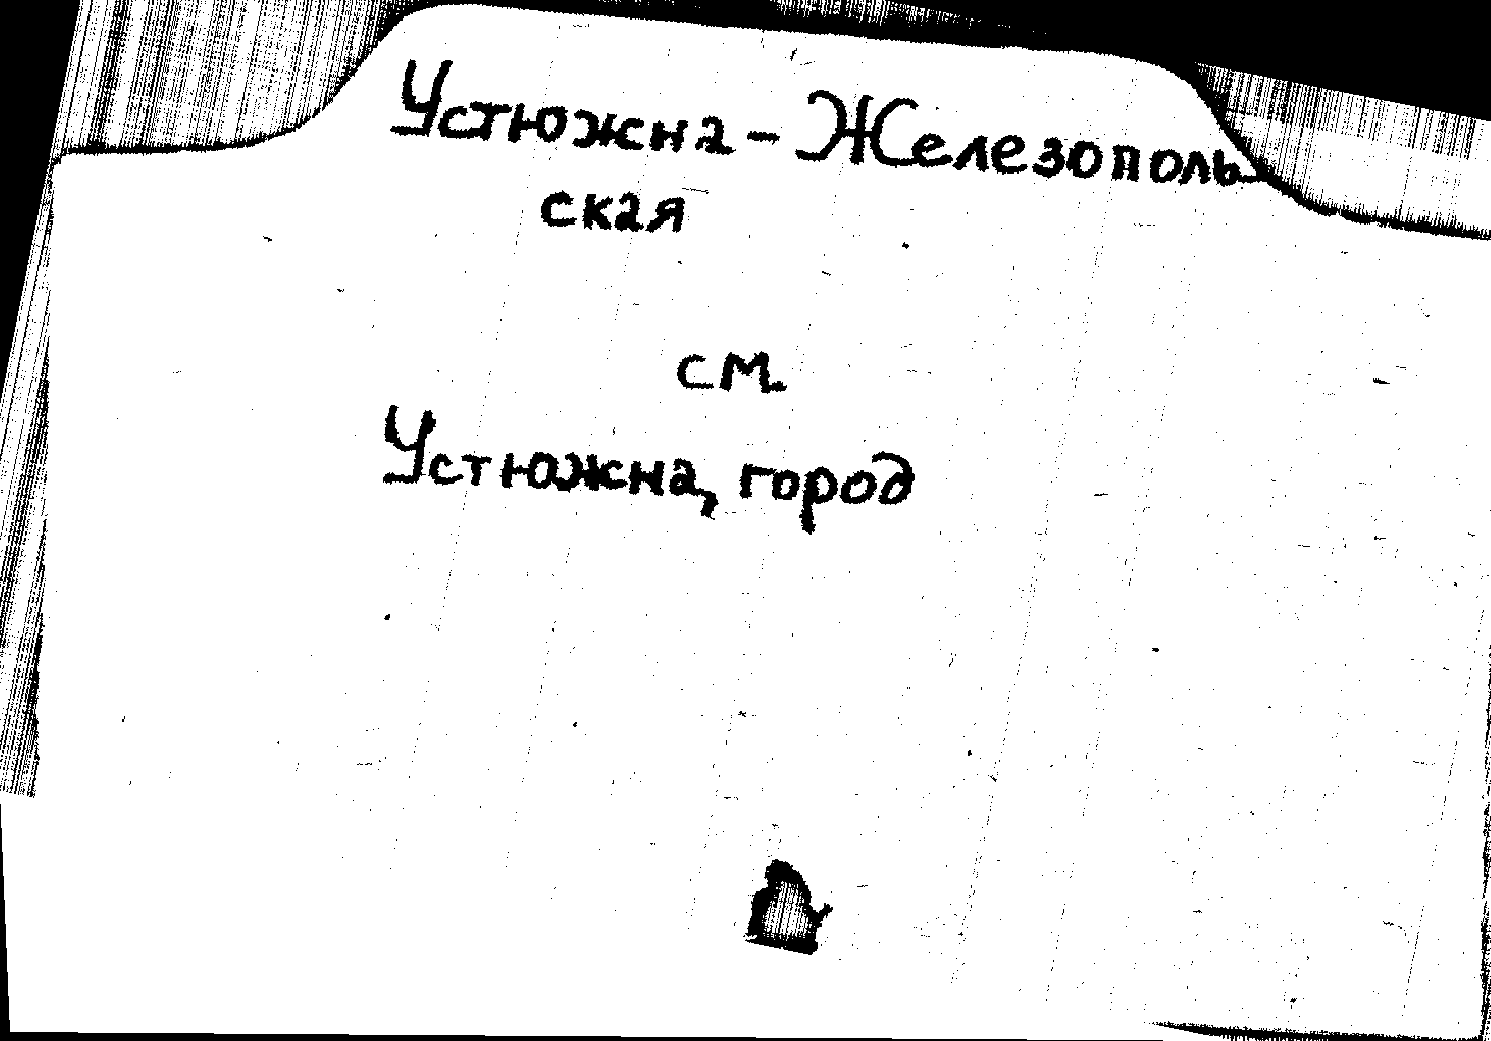 Устюжна - Железополь
ская
см.
Устюжна, город